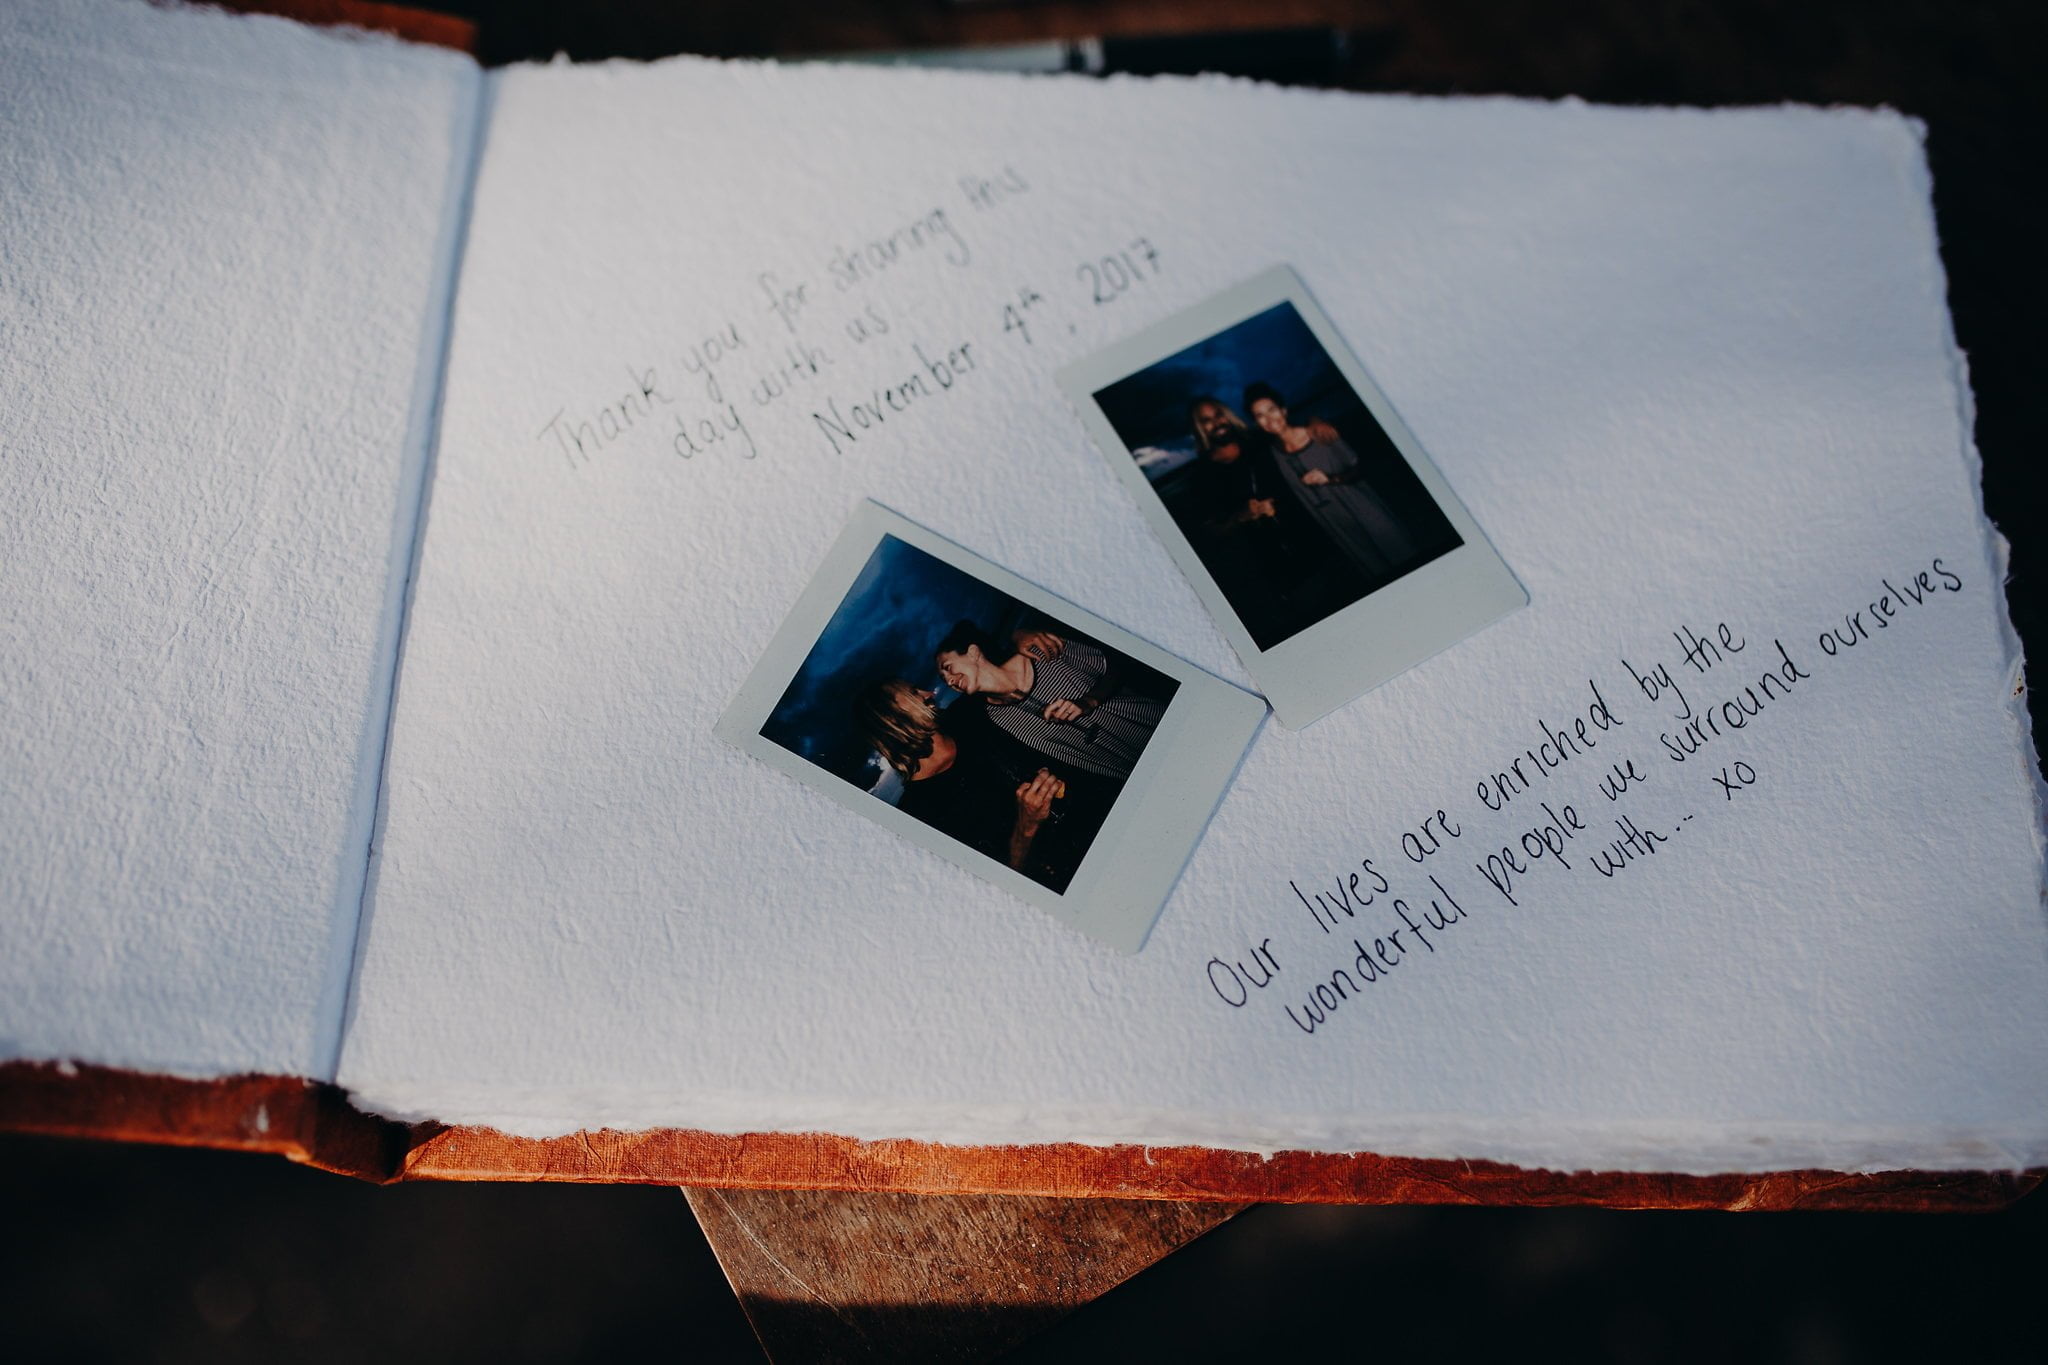 Thank you for sharing this
day with us...
November 4th, 2017
Our lives are enriched by the
wonderful people we surround ourselves
with... xo